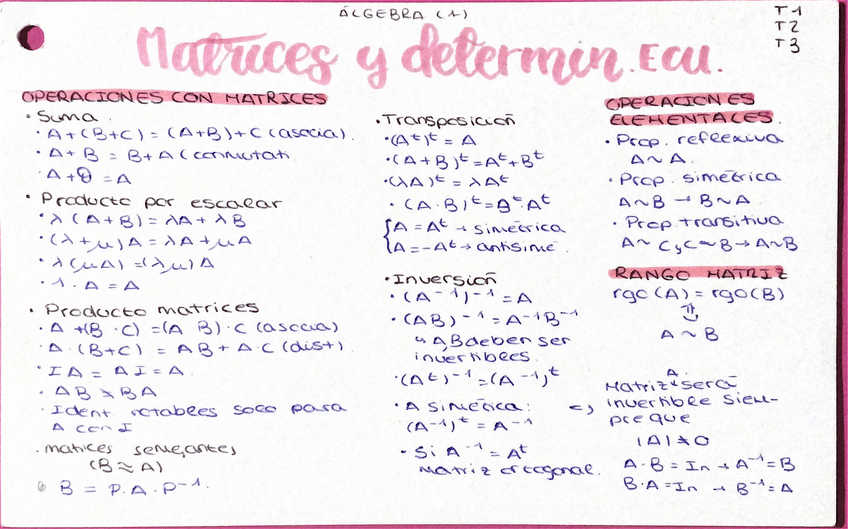 ÁLGEBRA (1)
T1
T2
T3
Matrices y determin. Ecu.
OPERACIONES CON MATRICES
· Suma.
· A+(B+C) = (A+B)+C (asocia).
· A+B = B+A (conmutati
· A+O = A
· Producto por escalar
· λ(A+B) = λA+λB
· (λ+μ)A = λA+μA
· λ(μA) = (λμ)A
· 1·A = A
· Producto matrices
· A+(B·C) = (A B)·C (asocia)
· A·(B+C) = AB+A·C (dist).
· IA = AI = A.
· AB ≠ BA
· Ident. notables solo para
A con I
· matrices semejantes
(B ≈ A)
B = P.A.P⁻¹.
· Transposición
· (Aᵗ)ᵗ = A
· (A+B)ᵗ = Aᵗ+Bᵗ
· (λA)ᵗ = λAᵗ
· (A·B)ᵗ = Bᵗ·Aᵗ
{A = Aᵗ → simétrica
{A = -Aᵗ → antisimé.
· Inversión
· (A⁻¹)⁻¹ = A
· (AB)⁻¹ = A⁻¹B⁻¹
↳ A,B deben ser
invertibles.
· (Aᵗ)⁻¹ = (A⁻¹)ᵗ
· A simétrica: ⇔
(A⁻¹)ᵗ = A⁻¹
· Si A⁻¹ = Aᵗ
matriz ortogonal.
OPERACIONES
ELEMENTALES.
· Prop. reflexiva
A~A.
· Prop. simétrica
A~B → B~A
· Prop. transitiva
A~C y C~B → A~B
RANGO MATRIZ
rgo(A) = rgo(B)
⇕
A ~ B
A.
Matriz será
invertible siem-
pre que
|A| ≠ 0
A·B = In → A⁻¹ = B
B·A = In → B⁻¹ = A